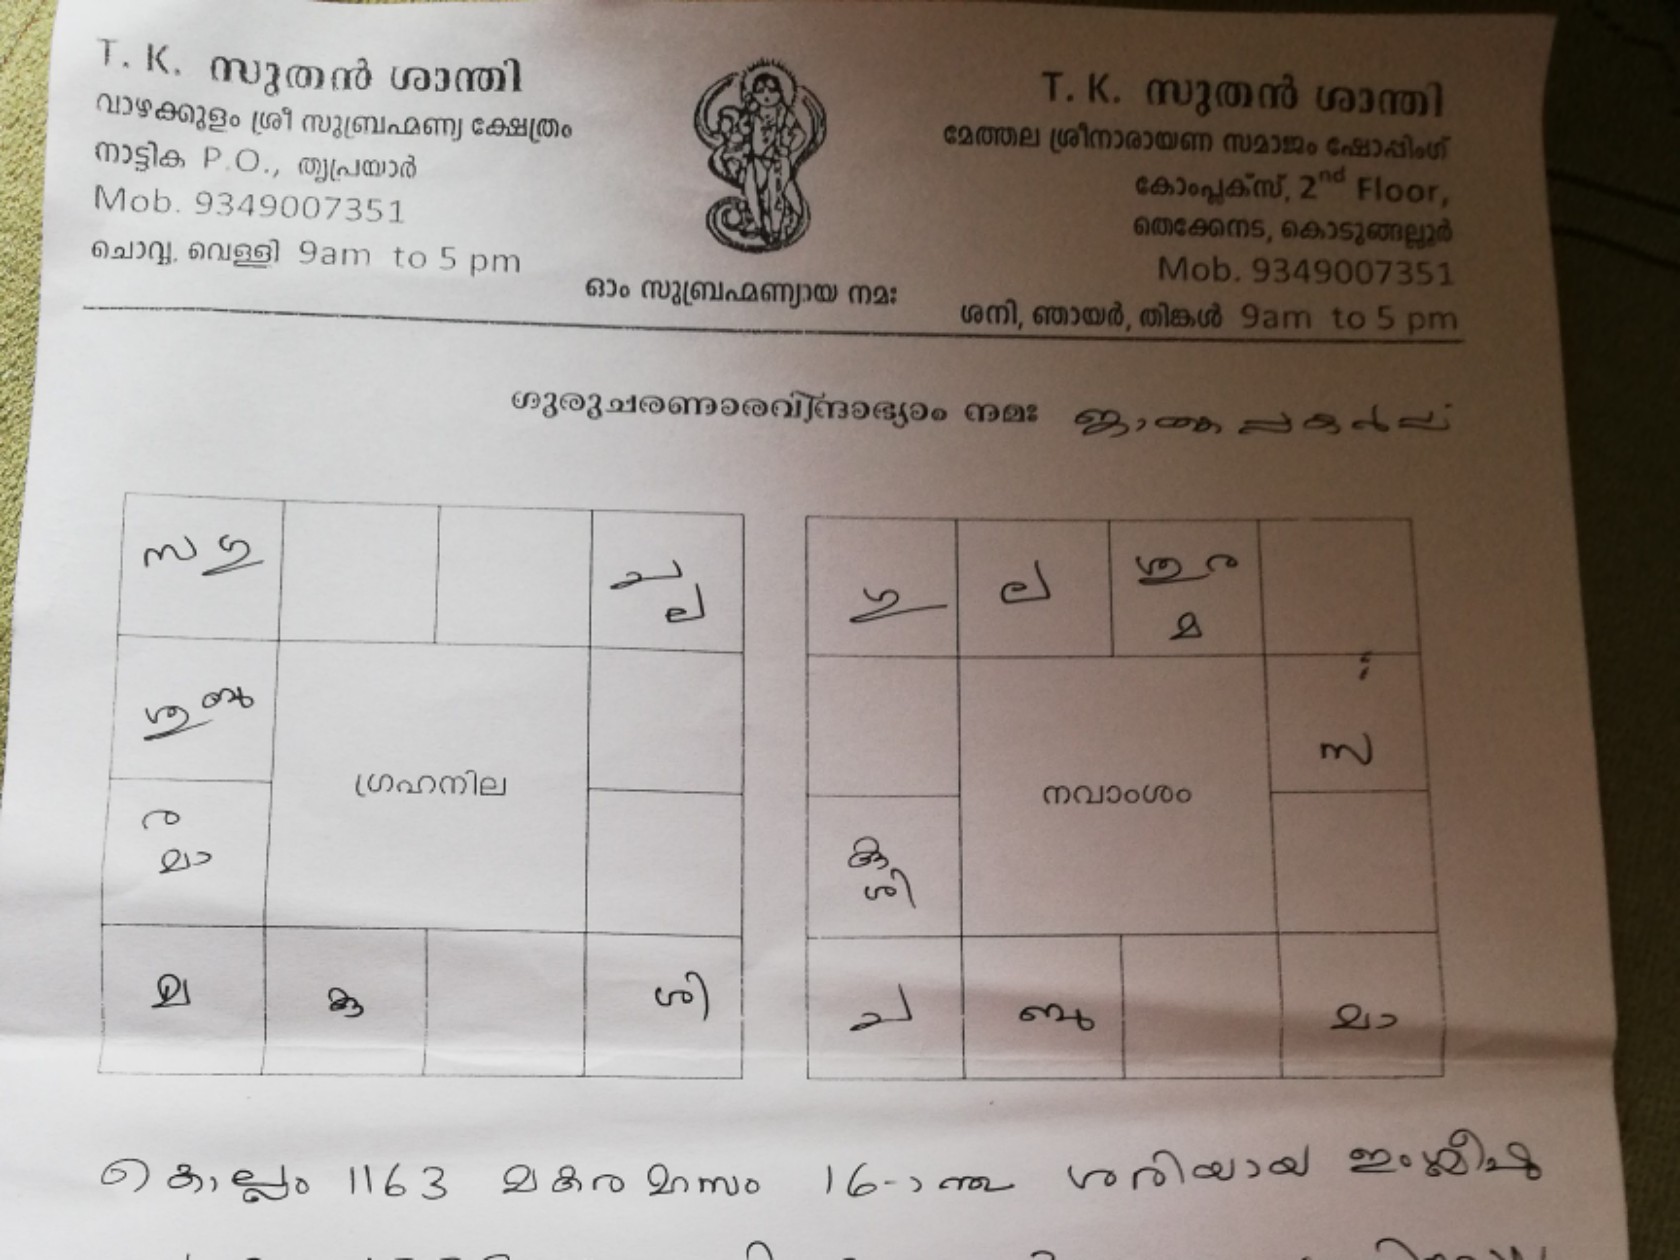 T. K. സുതൻ ശാന്തി
വാഴക്കുളം ശ്രീ സുബ്രഹ്മണ്യ ക്ഷേത്രം
നാട്ടിക P.O., തൃപ്രയാർ
Mob. 9349007351
ചൊവ്വ, വെള്ളി 9am to 5 pm
ഓം സുബ്രഹ്മണ്യായ നമഃ
T. K. സുതൻ ശാന്തി
മേത്തല ശ്രീനാരായണ സമാജം ഷോപ്പിംഗ്
കോംപ്ലക്സ്, 2nd Floor,
തെക്കേനട, കൊടുങ്ങല്ലൂർ
Mob. 9349007351
ശനി, ഞായർ, തിങ്കൾ 9am to 5 pm
ഗുരുചരണാരവിന്ദാഭ്യാം നമഃ
സ ഗു
ച
ല
ശു ബു
ഗ്രഹനില
ര
മാ
മ
കു
ശി
ഗു
ല
ശു ര
മ
സ
നവാംശം
കു
ശി
ച
ബു
മാ
കൊല്ലം 1163 മകര മാസം 16-ാം ശരിയായ ഇംഗ്ലീഷു